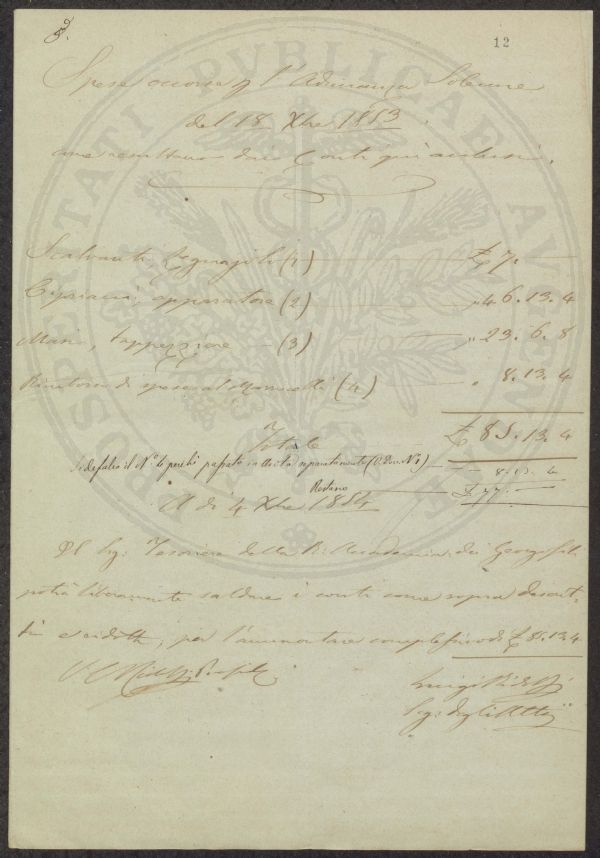 12
Spese occorse p l'Adunanza Solenne
del 18 Xbre 1853
come resultano dai Conti qui acclusi.
Scalvanti Legnajolo (1) £ 7.
Cipriani, apparatore (2) " 46.13.4
Masi, tappezziere (3) " 23.6.8
Rimborso di spese al Mannelli (4) " 8.13.4
Totale £ 85.13.4
Si defalca il N.o 4 perchè passato in Uscita separatamente (V. Doc. N. 1) 8.13.4
Restano £ 77.
A dì 4 Xbre 1854
Il Sig. Tesoriere della R. Accademia dei Georgofili
potrà liberamente saldare i conti come sopra descrit-
ti e ridotti, per l'ammontare complessivo di £ 85.13.4
Luigi Ridolfi
Seg. degli Atti
PROSPERITATI PVBLICAE AVGENDAE